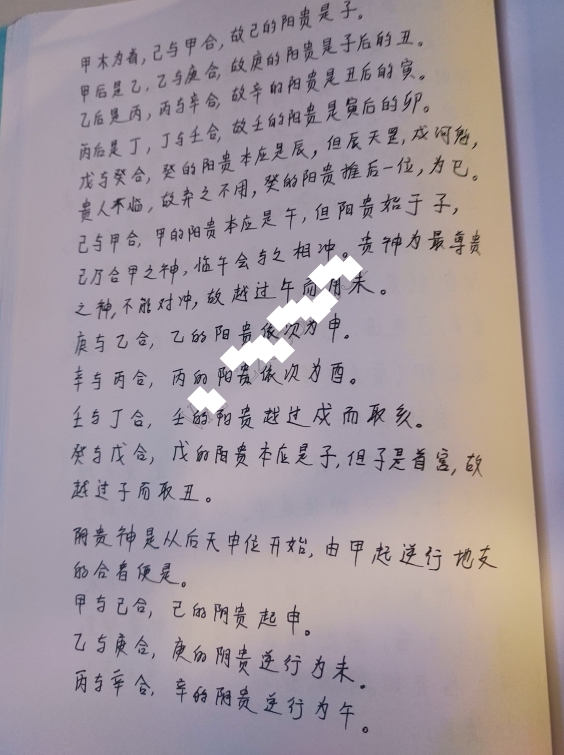 甲木为首，己与甲合，故己的阳贵是子。
甲后是乙，乙与庚合，故庚的阳贵是子后的丑。
乙后是丙，丙与辛合，故辛的阳贵是丑后的寅。
丙后是丁，丁与壬合，故壬的阳贵是寅后的卯。
戊与癸合，癸的阳贵本应是辰，但辰天罡，戌河魁，
贵人不临，故弃之不用，癸的阳贵推后一位，为巳。
己与甲合，甲的阳贵本应是午，但阳贵始于子，
己乃合甲之神，临午会与之相冲。贵神为最尊贵
之神，不能对冲，故越过午而用未。
庚与乙合，乙的阳贵依次为申。
辛与丙合，丙的阳贵依次为酉。
壬与丁合，壬的阳贵越过戌而取亥。
癸与戊合，戊的阳贵本应是子，但子是首宫，故
越过子而取丑。
阴贵神是从后天申位开始，由甲起逆行地支
的合者便是。
甲与己合，己的阴贵起申。
乙与庚合，庚的阴贵逆行为未。
丙与辛合，辛的阴贵逆行为午。